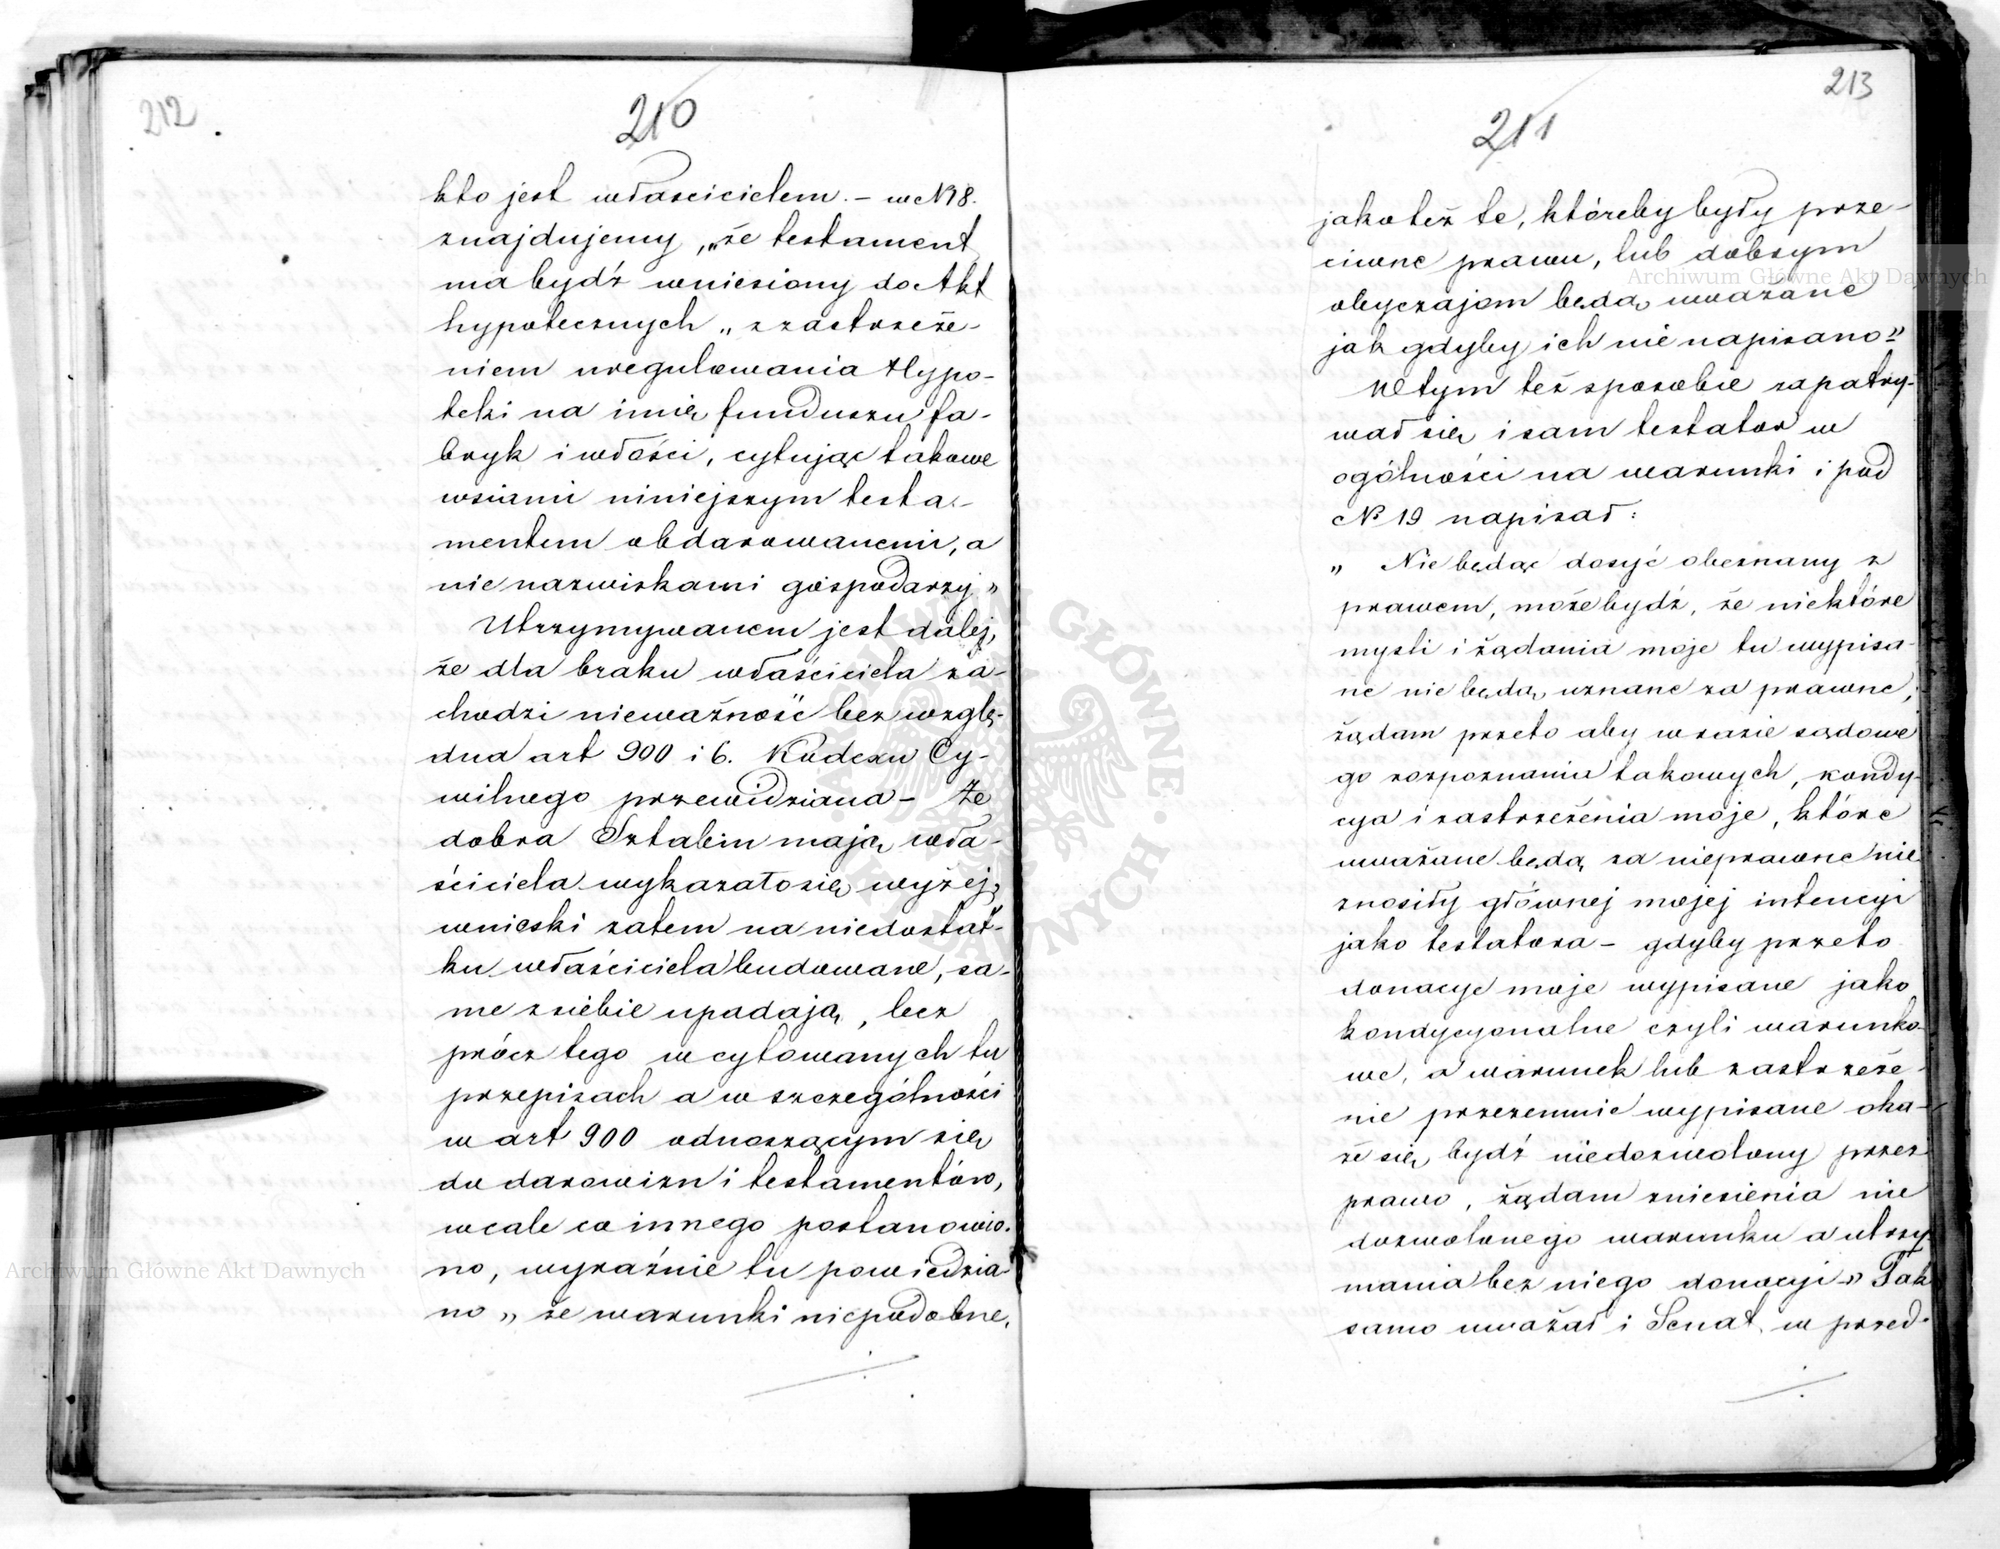 212
210
kto jest właścicielem. – w N18.
znajdujemy, „że testament
ma bydź wniesiony do Akt
hypotecznych „z zastrzeże-
niem uregulowania Hypo-
teki na imię funduszu fa-
bryk i włości, cytując takowe
wsiami niniejszym testa-
mentem obdarowanemi, a
nie nazwiskami gospodarzy."
Utrzymywanem jest dalej,
że dla braku właściciela za-
chodzi nieważność bez wzglę-
dna art 900 i 6. Kodexu Cy-
wilnego przewidziana – Że
dobra Sztabin mają wła-
ściciela wykazało się wyżej,
wnioski zatem na niedostat-
ku właściciela budowane, sa-
me z siebie upadają, lecz
prócz tego w cytowanych tu
przepisach a w szczególności
w art 900 odnoszącym się
do darowizn i testamentów,
wcale co innego postanowio-
no, wyraźnie tu powiedzia-
no „że warunki niepodobne,
213
211
jakoteż te, któreby były prze-
ciwne prawu, lub dobrym
obyczajom będą uważane
jak gdyby ich nie napisano"
W tym też sposobie zapatry-
wał się i sam testator w
ogólności na warunki i pod
N 19 napisał:
„ Nie będąc dosyć obeznany z
prawem, może bydź, że niektóre
myśli i żądania moje tu wypisa-
ne nie będą uznane za prawne,
żądam przeto aby w razie sądowe
go rozpoznania takowych, kondy-
cya i zastrzeżenia moje, które
uważane będą za nieprawne nie
znosiły głównej mojej intencyi
jako testatora – gdyby przeto
donacye moje wypisane jako
kondycyonalne czyli warunko-
we, a warunek lub zastrzeże-
nie przezemnie wypisane oka-
że się bydź niedozwolony przez
prawo, żądam zniesienia nie
dozwolonego warunku a utrzy
mania bez niego donacyi –" Tak
samo uważał i Senat w przed-
Archiwum Główne Akt Dawnych
Archiwum Główne Akt Dawnych